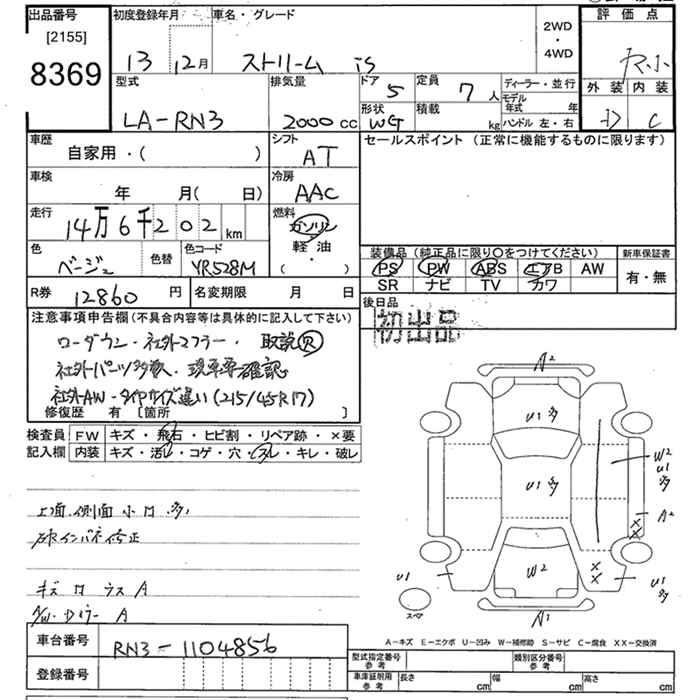 出品番号
[2155]
8369
初度登録年月 車名・グレード
13 12月 ストリーム iS
2WD
・
4WD
評価点
外装 内装
D C
型式 排気量 ドア 定員 ディーラー・並行
LA-RN3 2000 cc 5 7人 モデル年式 年
形状 積載
WG kg ハンドル 左・右
車歴 シフト
自家用・( ) AT
セールスポイント (正常に機能するものに限ります)
車検 冷房
年 月( 日) AAC
走行 燃料
14万6千202km ガソリン
軽油
( )
色 色替 色コード
ベージュ YR528M
装備品 (純正品に限り○をつけてください) 新車保証書
PS PW ABS エアB AW 有・無
SR ナビ TV カワ
R券 12860円 名変期限 月 日
後日品
初出品
注意事項申告欄(不具合内容等は具体的に記入して下さい)
ローダウン・社外マフラー・取説R
社外パーツ多数入・現車要確認
社外AW・タイヤサイズ違い(215/45R17)
修復歴 有[箇所 ]
検査員 FW キズ・飛石・ヒビ割・リペア跡・×要
記入欄 内装 キズ・汚レ・コゲ・穴・スレ・キレ・破レ
上面、側面 小凹 多
キズ 凹 ウスA
A2
U1多
W2
U1
多
U1多
A2
XX
W2
XX
U1
U1
多
スペア
A1
A-キズ E-エクボ U-凹み W-補修跡 S-サビ C-腐食 XX-交換済
車台番号 RN3-1104856
登録番号
型式指定番号 参考 類別区分番号 参考
車庫証明用 参考 長さ cm 幅 cm 高さ cm